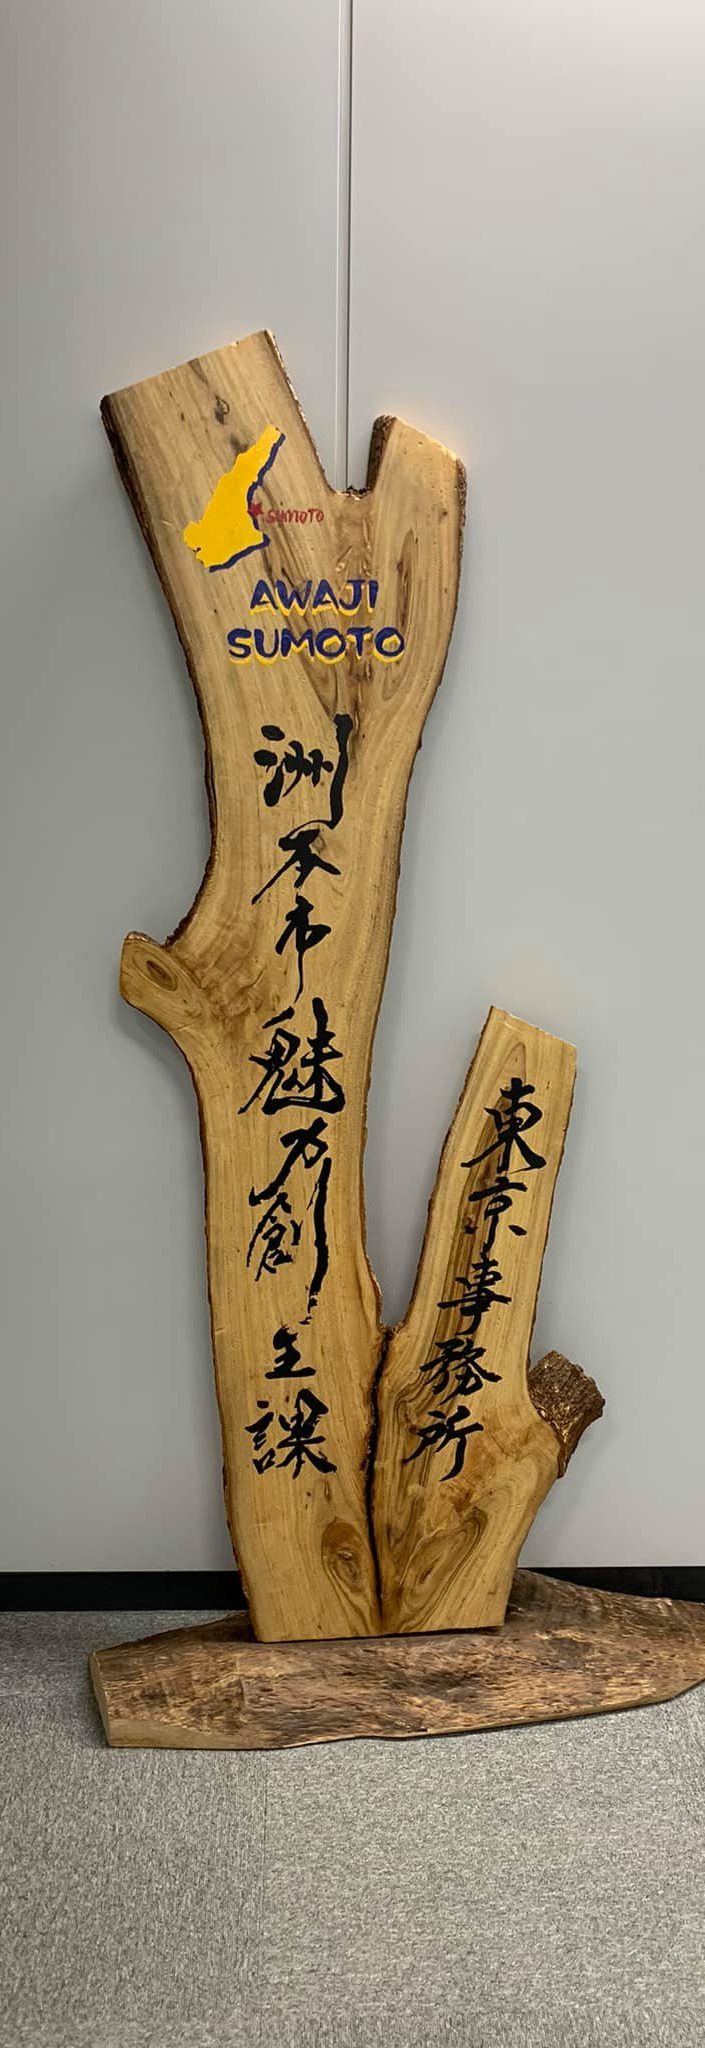 sumoto
AWAJI
SUMOTO
洲本市魅力創生課
東京事務所